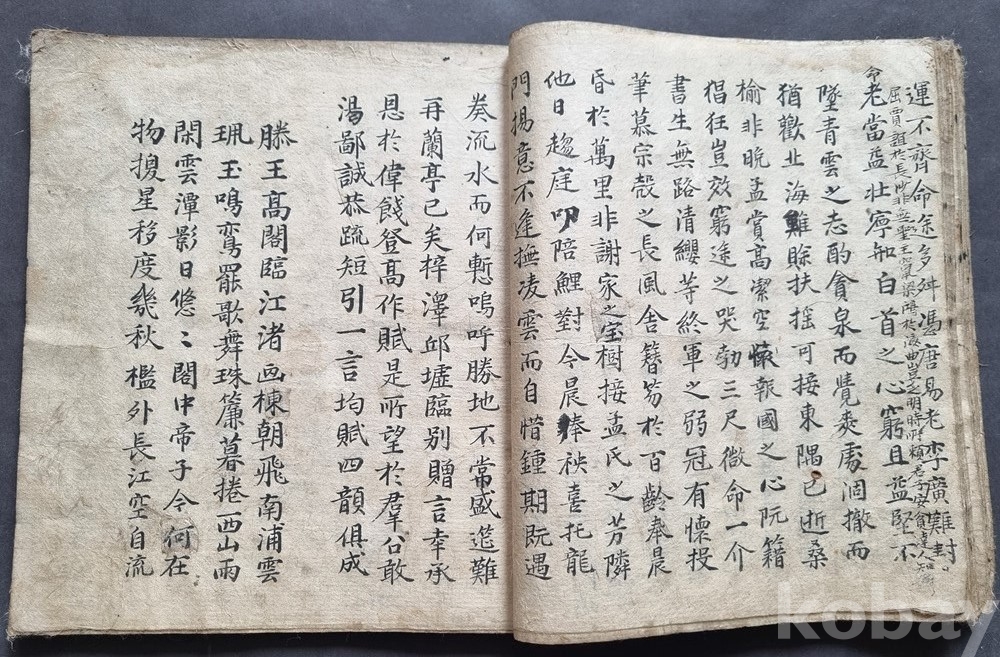 運不齊命途多舛馮唐易老李廣難封
屈賈誼於長沙非無聖主竄梁鴻於海曲豈乏明時所賴君子安貧達人知
命
老當益壯寧知白首之心窮且益堅不
墜青雲之志酌貪泉而覺爽處涸撤而
猶歡北海雖賖扶搖可接東隅已逝桑
榆非晚孟賞高潔空懷報國之心阮籍
倡狂豈效窮途之哭勃三尺微命一介
書生無路清纓等終軍之弱冠有懷投
筆慕宗殼之長風舍簪笏於百齡奉晨
昏於萬里非謝家之宝樹接孟氏之芳隣
他日趍庭叨陪鯉對今晨捧袂喜托龍
門揚意不逢撫凌雲而自惜鍾期既遇
奏流水而何慙嗚呼勝地不常盛筵難
再蘭亭已矣梓澤邱墟臨別贈言幸承
恩於偉餞登高作賦是所望於羣公敢
湯鄙誠恭疏短引一言均賦四韻俱成
滕王高閣臨江渚画棟朝飛南浦雲
珮玉鳴鸞罷歌舞珠簾暮捲西山雨
閑雲潭影日悠〻閣中帝子今何在
物換星移度幾秋檻外長江空自流
kobay